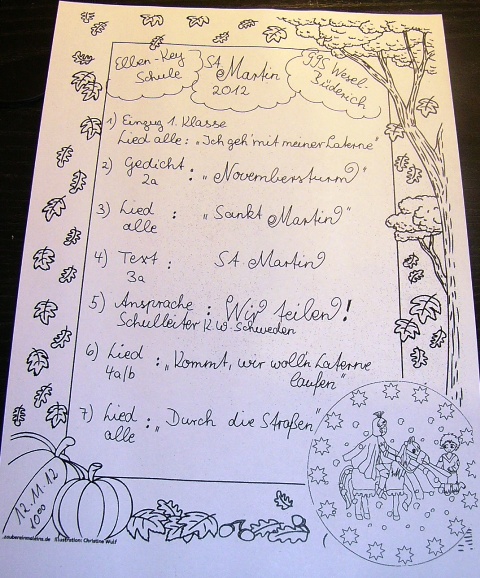 Ellen-Key
Schule
St
Martin
2012
GGS Wesel-
Büderich
1) Einzug 1. Klasse
Lied alle: „Ich geh' mit meiner Laterne"
2) Gedicht : „Novembersturm"
2a
3) Lied : „Sankt Martin"
alle
4) Text : St. Martin
3a
5) Ansprache : Wir teilen!
Schulleiter K.W. Schweden
6) Lied : „Kommt, wir woll'n Laterne
4a/b laufen"
7) Lied : „Durch die Straßen"
alle
12.11.12
1000
Illustration: Christine Wulf